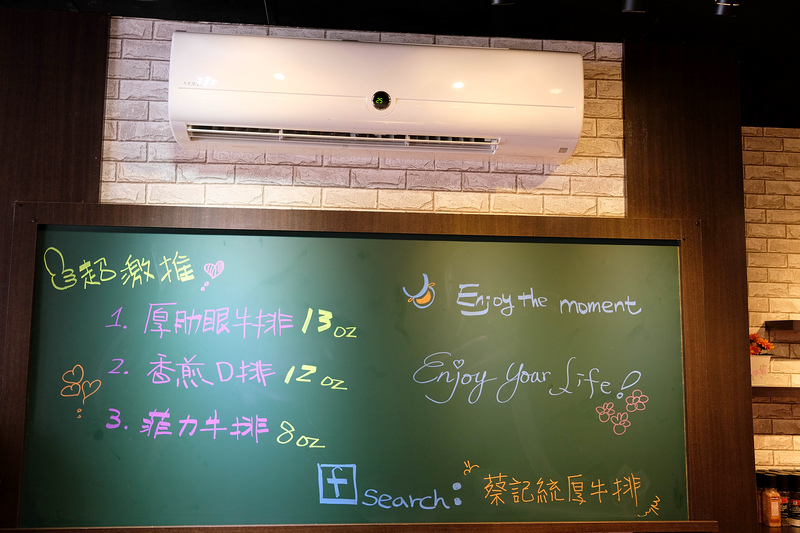 25
超激推
1. 厚肋眼牛排 13oz
2. 香煎D排 12oz
3. 菲力牛排 8oz
Enjoy the moment
Enjoy Your Life!
f Search: 蔡記統厚牛排